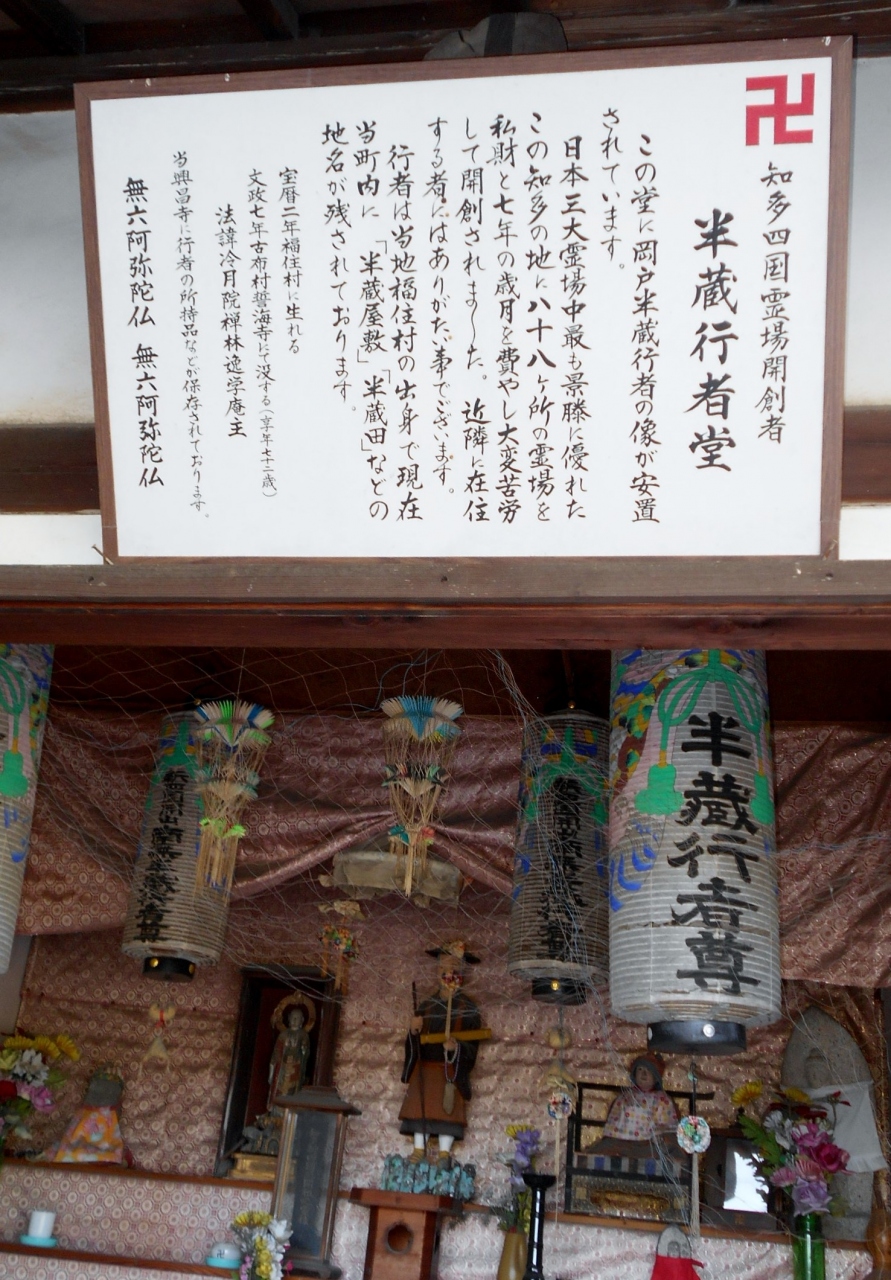 卍
知多四国霊場開創者
半蔵行者堂
この堂に岡戸半蔵行者の像が安置
されています。
日本三大霊場中最も景勝に優れた
この知多の地に八十八ヶ所の霊場を
私財と七年の歳月を費やし大変苦労
して開創されました。近隣に在住
する者にはありがたい事でございます。
行者は当地福住村の出身で現在
当町内に「半蔵屋敷」「半蔵田」などの
地名が残されております。
宝暦二年福住村に生れる
文政七年古布村誓海寺とて没する(享年七十二歳)
法諱冷月院禅林逸学庵主
当興昌寺に行者の所持品などが保存されております。
無六阿弥陀仏 無六阿弥陀仏
半蔵行者尊